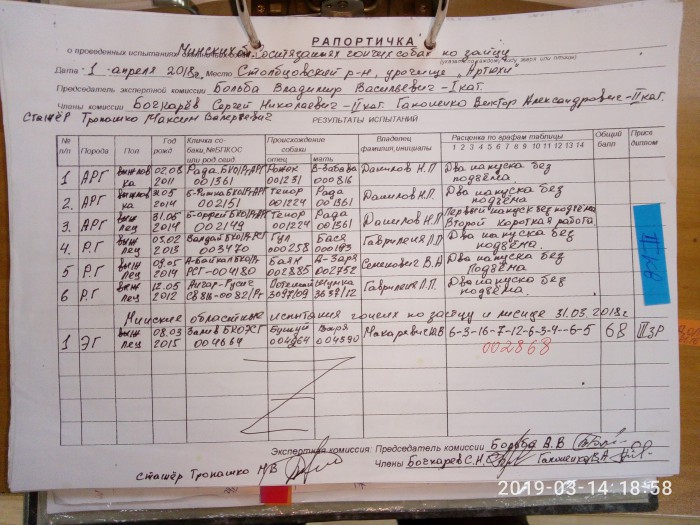 РАПОРТИЧКА
о проведенных испытаниях Минских обл. Состязаниях гончих собак по зайцу
(указать по какому виду зверя или птицы)
Дата "1" апреля 2018г. Место Столбцовский р-н, урочище "Артюхи"
Председатель экспертной комиссии Борьба Владимир Васильевич - I кат.
Члены комиссии Бочкарёв Сергей Николаевич - II кат. Гапоненко Виктор Александрович - II кат.
Стажёр Тропашко Максим Валерьевич
РЕЗУЛЬТАТЫ ИСПЫТАНИЙ
№ п/п Порода Пол Год рожд Кличка собаки, №БПКОС или род.свид. Происхождение собаки отец мать Владелец фамилия,инициалы Расценка по графам таблицы 1 2 3 4 5 6 7 8 9 10 11 12 13 14 Общий балл Присв. диплом
1 АРГ выжловка 02.08 Рада БКО/РАРГ 001361 Рожок 001231 В-Забава 000816 Данилов Н.П Два напуска без подъёма.
2. АРГ выжловка 2014 Б-Римма БКО/РАРГ 002151 Тенор 001224 Рада 001361 Данилов Н.П. Два напуска без подъёма
3. АРГ выжлец 31.05 2014 Б-Орфей БКО/РАРГ 002149 Тенор 001224 Рада 001361 Данилов Н.П Первый напуск без подъёма Второй короткая работа
4. Р.Г выжлец 05.02 2013 Валдай БКО/Р.РГ 003470 Гул 000258 Бася 000193 Гавриленя Л.П. Два напуска без подъёма.
5 Р.Г выжлец 09.05 2014 А-Байкал БКО/Р. РСГ-004180 Баян 002885 А-Заря 002752 Семенович В.А Два напуска без подъёма
6 Р.Г выжлец 12.05 2012 Ангар-Русич Гавриленя Л.П. Два напуска без подъёма.
Минские областные испытания гончих по зайцу и лисице 31.03.2018г
1 ЭГ выжлец 08.03 2015 Залив БКОЭСГ 004664 Бушуй 004590 Макаревич И.В 6-3-16-7-12-6-3-4--6-5 68 III ЗР
002868
Экспертная комиссия: Председатель комиссии Борьба В.В
Стажёр Тропашко М/В Члены Бочкарев С.Н. Гапоненко В.А.
2019-03-14 18:58